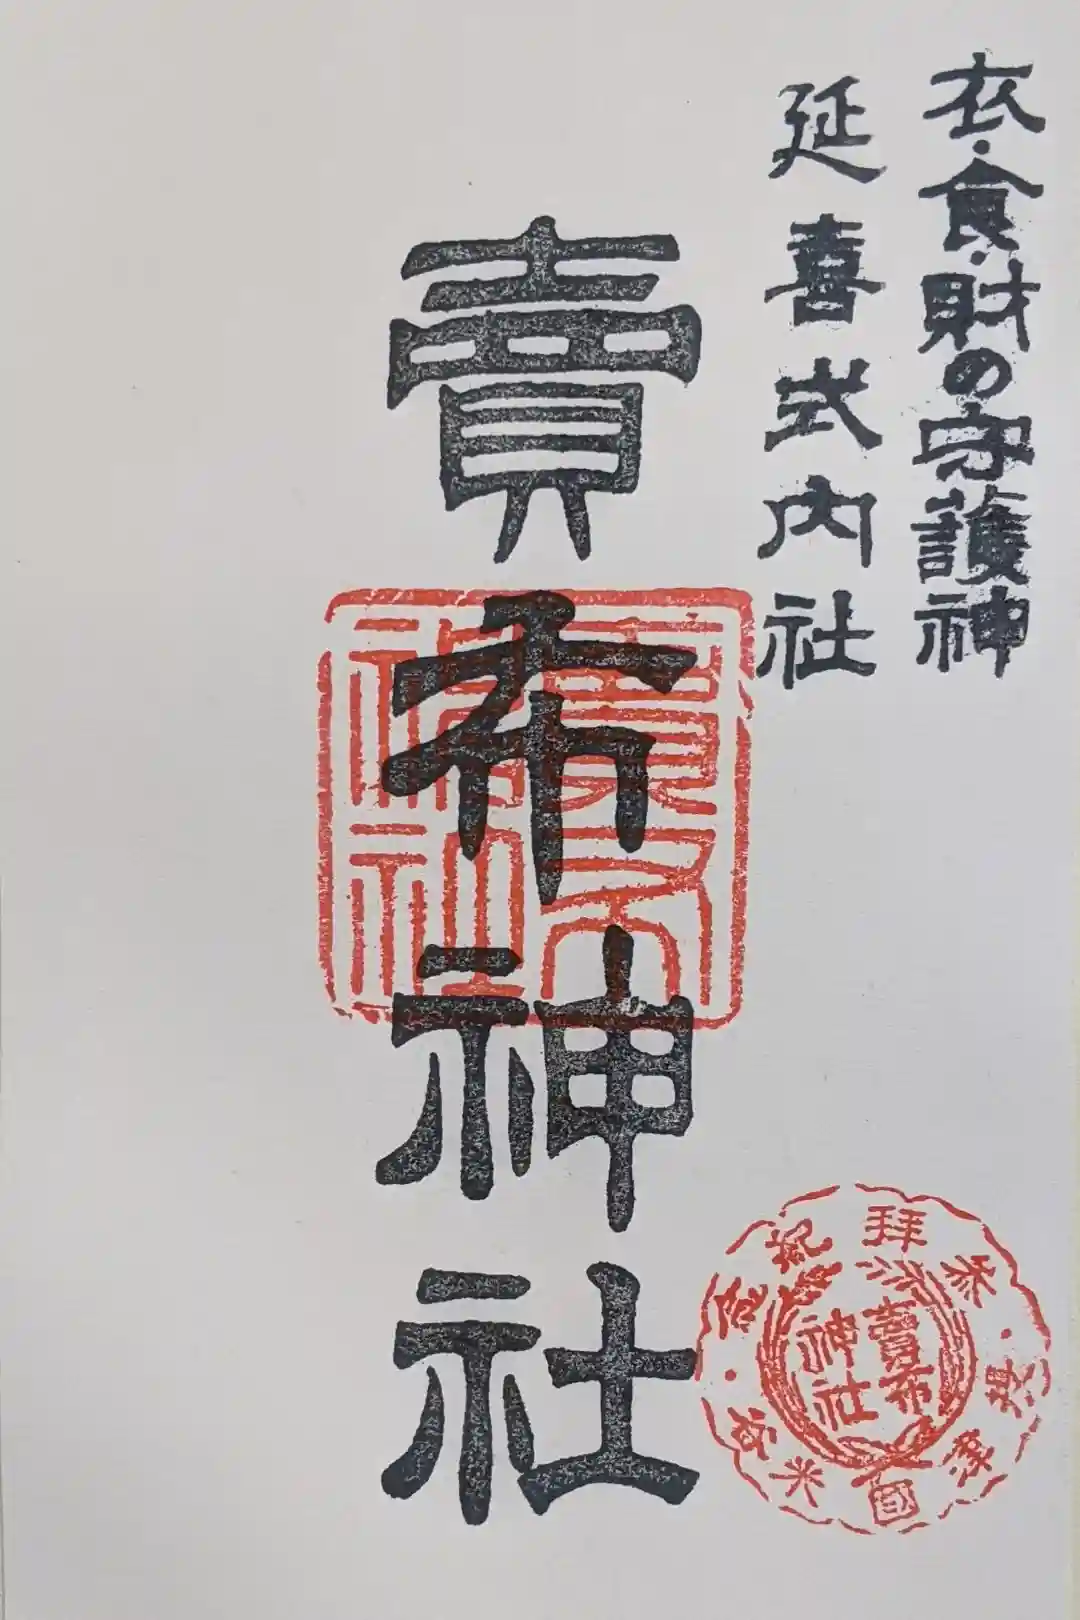 衣・食・財の守護神
延喜式内社
賣布神社
賣布
神社
参拝記念
摂津国米谷